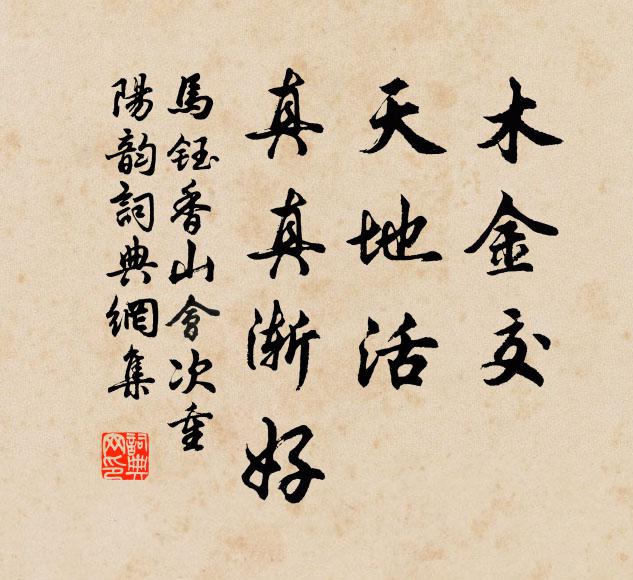 木金交
天地活
真真渐好
馬鈺香山會次重
陽韵詞典網集
詞典
网印